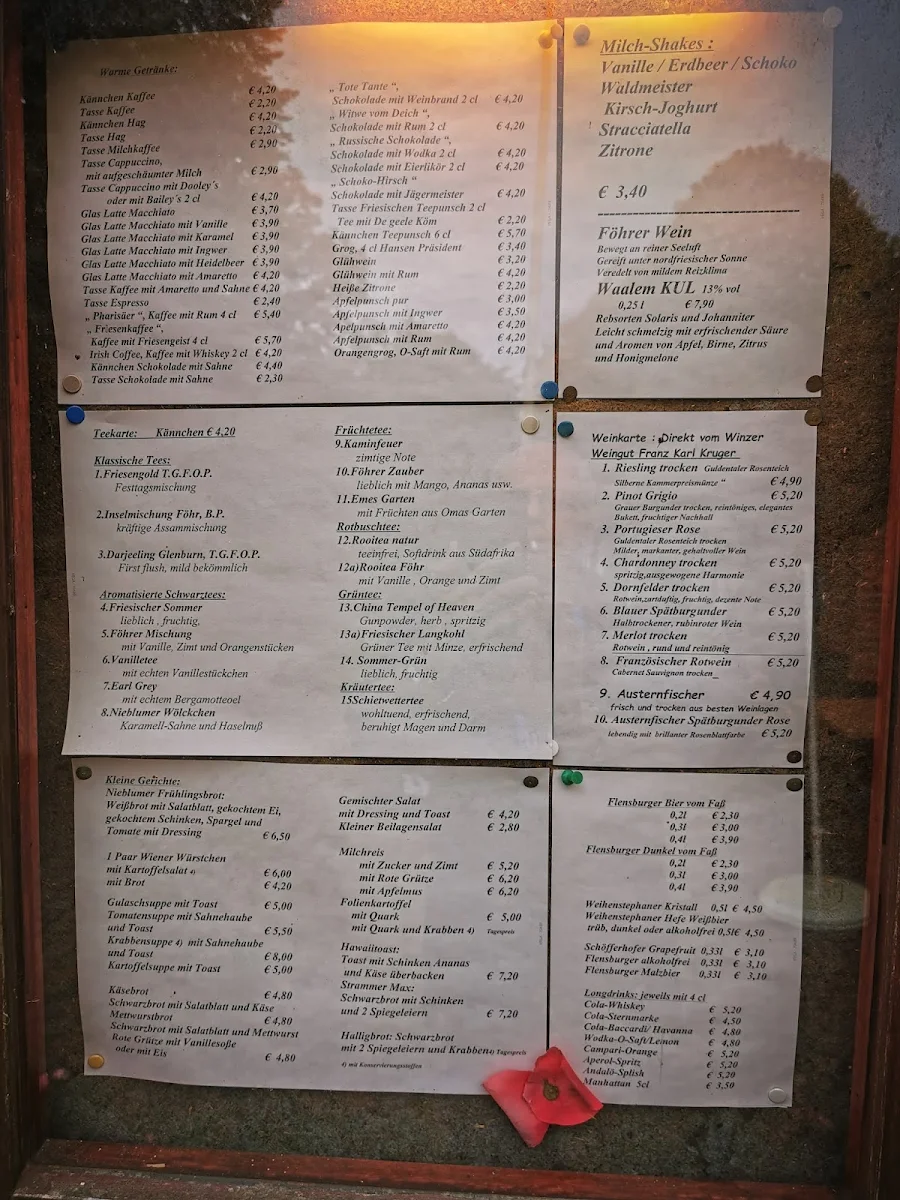 Warme Getränke:
Kännchen Kaffee € 4,20
Tasse Kaffee € 2,20
Kännchen Hag € 4,20
Tasse Hag € 2,20
Tasse Milchkaffee € 2,90
Tasse Cappuccino,
mit aufgeschäumter Milch € 2,90
Tasse Cappuccino mit Dooley's
oder mit Bailey's 2 cl € 4,20
Glas Latte Macchiato € 3,70
Glas Latte Macchiato mit Vanille € 3,90
Glas Latte Macchiato mit Karamel € 3,90
Glas Latte Macchiato mit Ingwer € 3,90
Glas Latte Macchiato mit Heidelbeer € 3,90
Glas Latte Macchiato mit Amaretto € 4,20
Tasse Kaffee mit Amaretto und Sahne € 4,20
Tasse Espresso € 2,40
„ Pharisäer “, Kaffee mit Rum 4 cl € 5,40
„ Friesenkaffee “,
Kaffee mit Friesengeist 4 cl € 5,70
Irish Coffee, Kaffee mit Whiskey 2 cl € 4,20
Kännchen Schokolade mit Sahne € 4,40
Tasse Schokolade mit Sahne € 2,30
„ Tote Tante “,
Schokolade mit Weinbrand 2 cl € 4,20
„ Witwe vom Deich “,
Schokolade mit Rum 2 cl € 4,20
„ Russische Schokolade “,
Schokolade mit Wodka 2 cl € 4,20
Schokolade mit Eierlikör 2 cl € 4,20
„ Schoko-Hirsch “
Schokolade mit Jägermeister € 4,20
Tasse Friesischen Teepunsch 2 cl
Tee mit De geele Köm € 2,20
Kännchen Teepunsch 6 cl € 5,70
Grog, 4 cl Hansen Präsident € 3,40
Glühwein € 3,20
Glühwein mit Rum € 4,20
Heiße Zitrone € 2,20
Apfelpunsch pur € 3,00
Apfelpunsch mit Ingwer € 3,50
Apelpunsch mit Amaretto € 4,20
Apfelpunsch mit Rum € 4,20
Orangengrog, O-Saft mit Rum € 4,20
Milch-Shakes :
Vanille / Erdbeer / Schoko
Waldmeister
Kirsch-Joghurt
Stracciatella
Zitrone
€ 3,40
Föhrer Wein
Bewegt an reiner Seeluft
Gereift unter nordfriesischer Sonne
Veredelt von mildem Reizklima
Waalem KUL 13% vol
0,25 l € 7,90
Rebsorten Solaris und Johanniter
Leicht schmelzig mit erfrischender Säure
und Aromen von Apfel, Birne, Zitrus
und Honigmelone
Teekarte: Kännchen € 4,20
Klassische Tees:
1.Friesengold T.G.F.O.P.
Festtagsmischung
2.Inselmischung Föhr, B.P.
kräftige Assammischung
3.Darjeeling Glenburn, T.G.F.O.P.
First flush, mild bekömmlich
Aromatisierte Schwarztees:
4.Friesischer Sommer
lieblich , fruchtig,
5.Föhrer Mischung
mit Vanille, Zimt und Orangenstücken
6.Vanilletee
mit echten Vanillestückchen
7.Earl Grey
mit echtem Bergamotteoel
8.Nieblumer Wölckchen
Karamell-Sahne und Haselnuß
Früchtetee:
9.Kaminfeuer
zimtige Note
10.Föhrer Zauber
lieblich mit Mango, Ananas usw.
11.Emes Garten
mit Früchten aus Omas Garten
Rotbuschtee:
12.Rooitea natur
teeinfrei, Softdrink aus Südafrika
12a)Rooitea Föhr
mit Vanille , Orange und Zimt
Grüntee:
13.China Tempel of Heaven
Gunpowder, herb , spritzig
13a)Friesischer Langkohl
Grüner Tee mit Minze, erfrischend
14. Sommer-Grün
lieblich, fruchtig
Kräutertee:
15Schietwettertee
wohltuend, erfrischend,
beruhigt Magen und Darm
Weinkarte : Direkt vom Winzer
Weingut Franz Karl Kruger
1. Riesling trocken Guldentaler Rosenteich
Silberne Kammerpreismünze “ € 4,90
2. Pinot Grigio € 5,20
Grauer Burgunder trocken, reintöniges, elegantes
Bukett, fruchtiger Nachhall
3. Portugieser Rose € 5,20
Guldentaler Rosenteich trocken
Milder, markanter, gehaltvoller Wein
4. Chardonney trocken € 5,20
spritzig,ausgewogene Harmonie
5. Dornfelder trocken € 5,20
Rotwein,zartduftig, fruchtig, dezente Note
6. Blauer Spätburgunder € 5,20
Halbtrockener, rubinroter Wein
7. Merlot trocken € 5,20
Rotwein , rund und reintönig
8. Französischer Rotwein € 5,20
Cabernet Sauvignon trocken
9. Austernfischer € 4,90
frisch und trocken aus besten Weinlagen
10. Austernfischer Spätburgunder Rose
lebendig mit brillanter Rosenblattfarbe € 5,20
Kleine Gerichte:
Nieblumer Frühlingsbrot:
Weißbrot mit Salatblatt, gekochtem Ei,
gekochtem Schinken, Spargel und
Tomate mit Dressing € 6,50
1 Paar Wiener Würstchen
mit Kartoffelsalat 4) € 6,00
mit Brot € 4,20
Gulaschsuppe mit Toast € 5,00
Tomatensuppe mit Sahnehaube
und Toast € 5,50
Krabbensuppe 4) mit Sahnehaube
und Toast € 8,00
Kartoffelsuppe mit Toast € 5,00
Käsebrot € 4,80
Schwarzbrot mit Salatblatt und Käse
Mettwurstbrot € 4,80
Schwarzbrot mit Salatblatt und Mettwurst
Rote Grütze mit Vanillesoße
oder mit Eis € 4,80
Gemischter Salat
mit Dressing und Toast € 4,20
Kleiner Beilagensalat € 2,80
Milchreis
mit Zucker und Zimt € 5,20
mit Rote Grütze € 6,20
mit Apfelmus € 6,20
Folienkartoffel
mit Quark € 5,00
mit Quark und Krabben 4) Tagespreis
Hawaiitoast:
Toast mit Schinken Ananas
und Käse überbacken € 7,20
Strammer Max:
Schwarzbrot mit Schinken
und 2 Spiegeleiern € 7,20
Halligbrot: Schwarzbrot
mit 2 Spiegeleiern und Krabben4) Tagespreis
4) mit Konservierungsstoffen
Flensburger Bier vom Faß
0,2l € 2,30
0,3l € 3,00
0,4l € 3,90
Flensburger Dunkel vom Faß
0,2l € 2,30
0,3l € 3,00
0,4l € 3,90
Weihenstephaner Kristall 0,5l € 4,50
Weihenstephaner Hefe Weißbier
trüb, dunkel oder alkoholfrei 0,5l€ 4,50
Schöfferhofer Grapefruit 0,33l € 3,10
Flensburger alkoholfrei 0,33l € 3,10
Flensburger Malzbier 0,33l € 3,10
Longdrinks: jeweils mit 4 cl
Cola-Whiskey € 5,20
Cola-Sternmarke € 4,50
Cola-Baccardi/ Havanna € 4,80
Wodka-O-Saft/Lemon € 4,80
Campari-Orange € 5,20
Aperol-Spritz € 5,20
Andalö-Splish € 5,20
Manhattan 5cl € 3,50